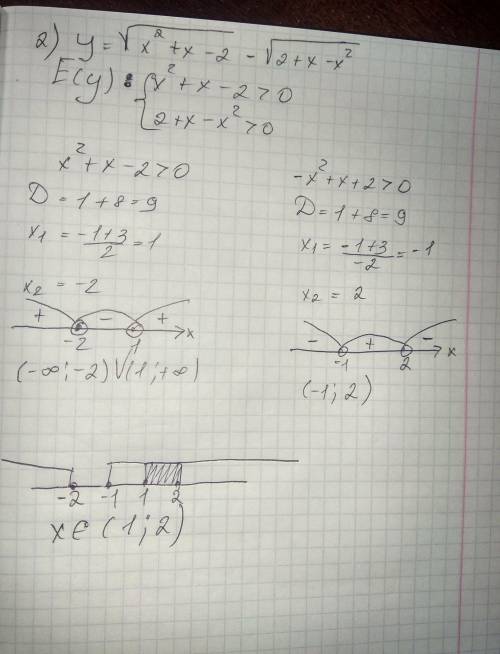 2) y = √(x² + x − 2) − √(2 + x − x²)
E(y) : { x² + x − 2 > 0
2 + x − x² > 0
x² + x − 2 > 0
D = 1 + 8 = 9
x₁ = (−1+3)/2 = 1
x₂ = −2
+ − + x
−2 1
(−∞; −2) ∪ (1; +∞)
−x² + x + 2 > 0
D = 1 + 8 = 9
x₁ = (−1+3)/−2 = −1
x₂ = 2
− + − x
−1 2
(−1; 2)
−2 −1 1 2
x ∈ (1; 2)